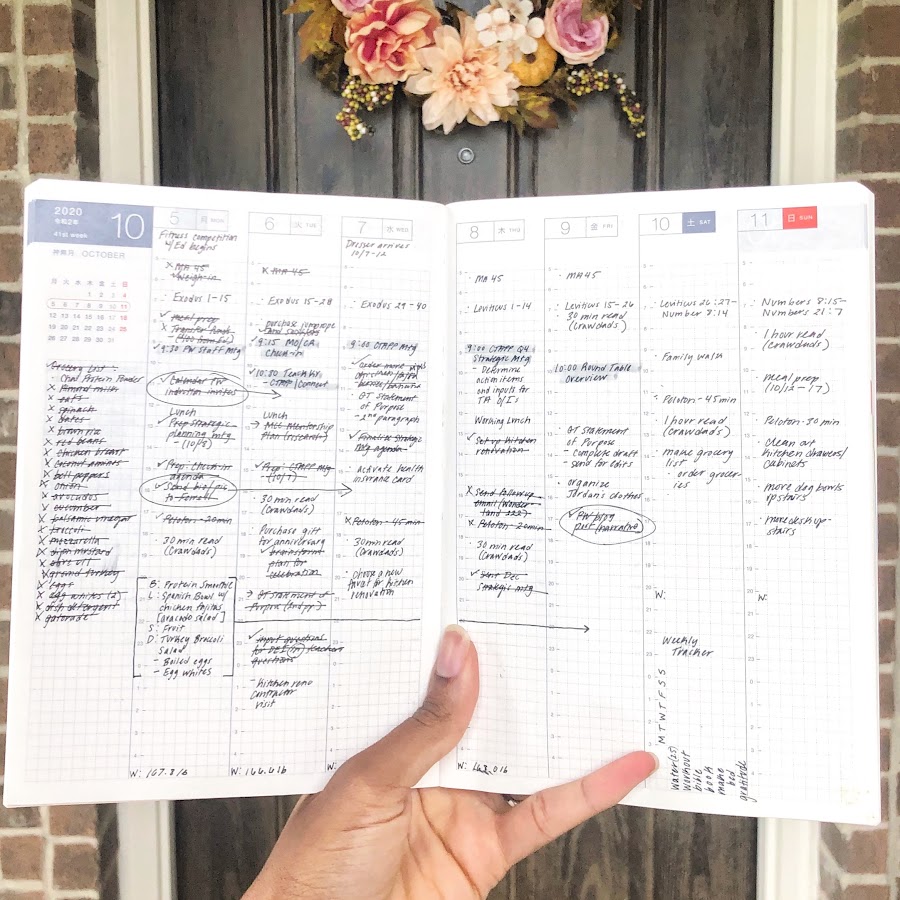 2020
令和2年
41st week
10
神無月 OCTOBER
月 火 水 木 金 土 日
1 2 3 4
5 6 7 8 9 10 11
12 13 14 15 16 17 18
19 20 21 22 23 24 25
26 27 28 29 30 31
Grocery List:
Oral Protein Powder
X Almond milk
X oats
X spinach
X dates
X brown rice
X red beans
X chicken breast
X coconut aminos
X bell peppers
X onion
X avocados
X cucumber
X balsamic vinegar
X broccoli
X mozzarella
X dijon mustard
X olive oil
X ground turkey
X eggs
X egg whites (2)
X dish detergent
X gatorade
5 月 MON
Fitness competition
w/ Ed begins
X MA 45
X Weigh-in
Exodus 1-15
✓ Meal prep
X Transfer funds
✓ 9:30 PW Staff Mtg
✓ Calendar PW
individual invites
Lunch
✓ Prep Strategic
planning mtg
- (10/8)
✓ Prep Check-in
agenda
✓ Send bio/pic
to Terrell
✓ Peloton - 20min
30 min read
(Crawdads)
B: Protein Smoothie
L: Spanish Bowl w/
chicken fajitas
[avocado salad]
S: Fruit
D: Turkey Broccoli
Salad
- Boiled eggs
- Egg whites
W: 167.8 lb
6 火 TUE
X MA 45
Exodus 15-28
purchase jumprope
✓ 9:15 MO/CA
Check-in
✓ 10:30 Teach by
- CTAPP/Connect
Lunch
→ MCC Mentorship
Plan (research)
✓ Prep CTAPP Mtg
- (10/7)
30 min read
(Crawdads)
Purchase gift
for anniversary
✓ brainstorm
plan for
celebration
→ GT Statement of
Purpose (2nd pgr)
✓ Input questions
for DEI (in) teachers
questions
- Kitchen reno
contractor
visit
W: 166.6 lb
7 水 WED
Dresser arrives
10/7-12
Exodus 29-40
9:00 CTAPP Mtg
✓ order more meals
berries/banana
GT Statement
of Purpose
- 2nd paragraph
✓ Finalize Strategic
mtg agenda
activate health
insurance card
X Peloton - 45 min
30 min read
(Crawdads)
Choose a new
threat for kitchen
renovation
W:
8 木 THU
MA 45
Leviticus 1-14
9:00 CTAPP Q4
Strategic Mtg
- Determine
action items
and inputs for
TA O/I's
Working Lunch
✓ Set up kitchen
renovation
X Send follow up
email (Wonder
land 222)
X Peloton 20min
30 min read
(Crawdads)
✓ Sent Dec
Strategic mtg
W: 163.0 lb
9 金 FRI
MA45
Leviticus 15-26
30 min read
(Crawdads)
10:00 Round Table
Overview
GT Statement
of Purpose
- complete draft
- send for edits
organize
Jordan's clothes
✓ PW bldg
pur/narrative
10 土 SAT
Leviticus 26:27-
Number 8:14
Family walk
Peloton - 45min
1 hour read
(Crawdads)
make grocery
list
- order grocer-
ies
W:
Weekly
Tracker
M T W T F S S
Water(25)
workout
bible
book
make
bed
gratitude
11 日 SUN
Numbers 8:15-
Numbers 21:7
1 hour read
(Crawdads)
meal prep
(10/12-17)
Peloton-30 min
clean out
kitchen drawers/
cabinets
move day bowls
upstairs
move desk up-
stairs
W: